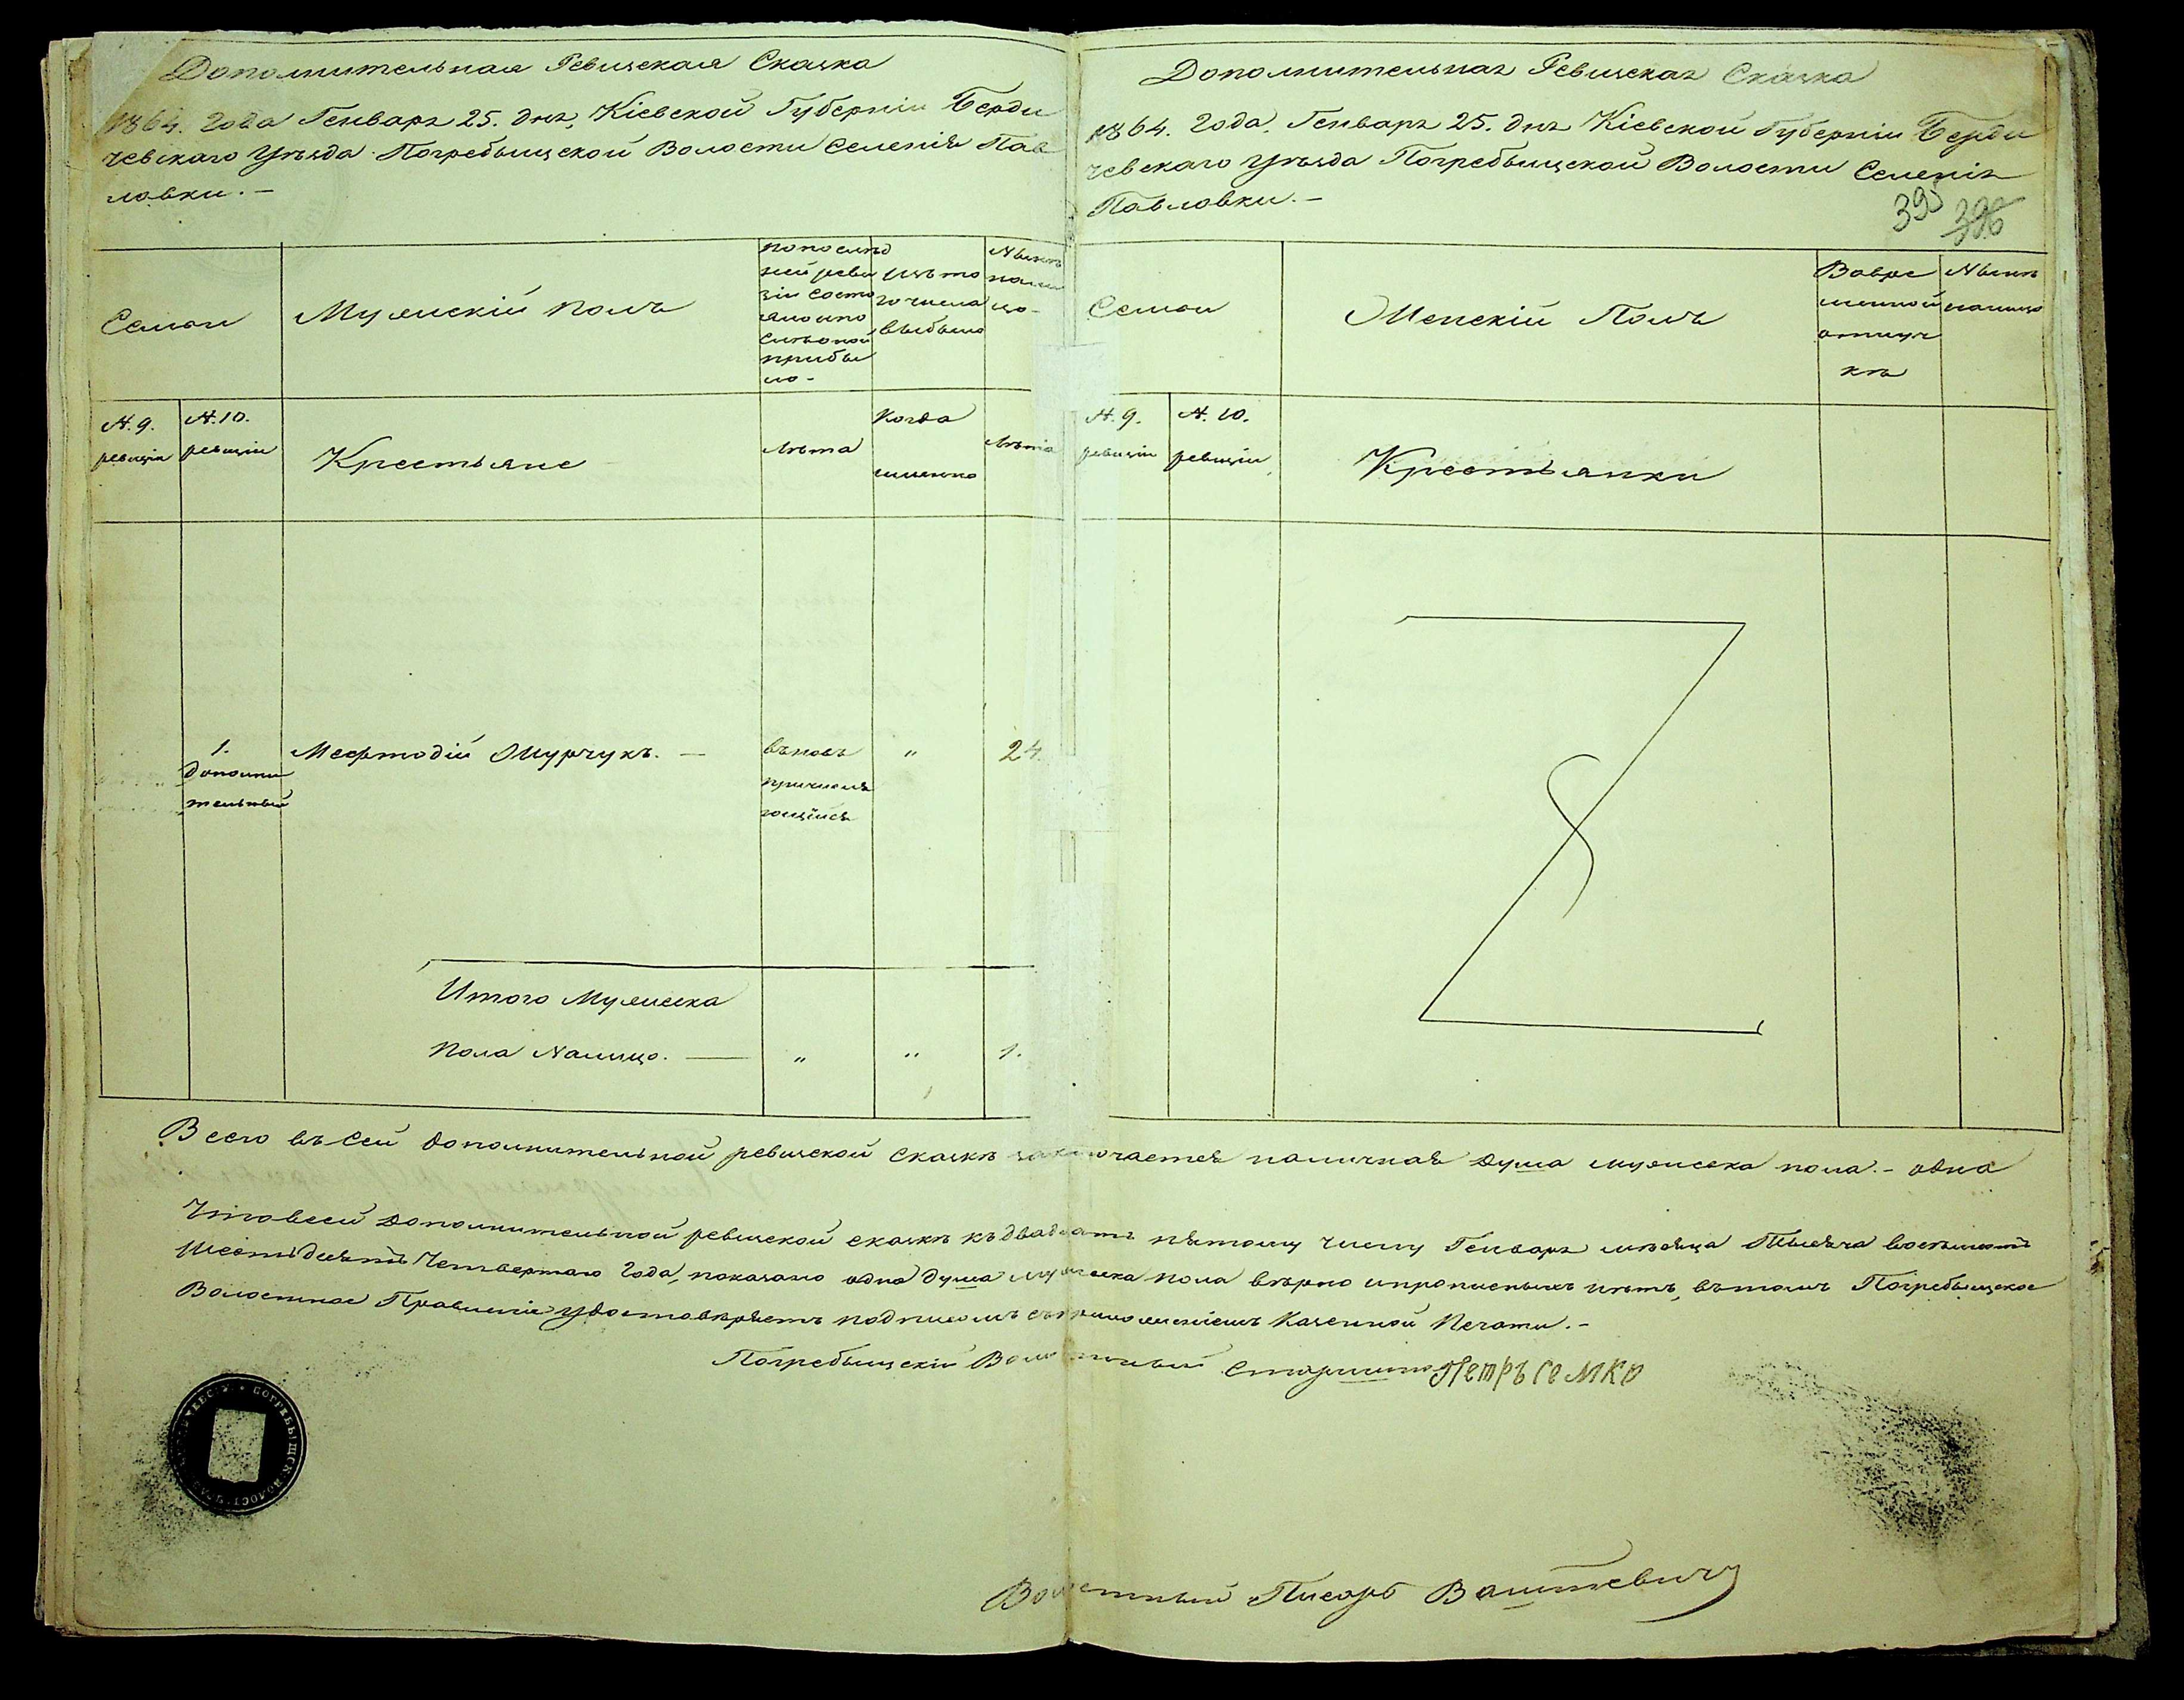 Дополнительная Ревизская Сказка
1864. года Генваря 25. дня, Кіевской Губерніи Берди
чевскаго Уѣзда Погребыщской Волости Селенія Пав
ловки.—
Семьи
Мужескій полъ
по послѣд
ней реви
зіи состо
яло и по
прибы
ло-
изъ то
го числа
выбыло
Нынѣ
нали
цо-
№. 9.
ревизіи
№. 10.
ревизіи
Крестьяне
Лѣта
Когда
именно
Лѣта
1.
дополни
тельный
Мефтодій Мурчукъ. —
вновь
причисля
ющійся
"
24.
Итого Мужеска
Пола Налицо. —
"
"
1.
Дополнительная Ревизская Сказка
1864. года. Генваря 25. дня Кіевской Губерніи Берди
чевскаго Уѣзда Погребыщской Волости Селенія
Павловки.—
395
396
Семьи
Женскій Полъ
Во вре
менной
отлуч
кѣ
Нынѣ
налицо
№. 9.
ревизіи
№. 10.
ревизіи
Крестьянки
Всего въ сей дополнительной ревизской сказкѣ заключается наличная душа мужеска пола.- одна
Что в сей дополнительной ревизской сказкѣ къ двадцать пятому числу Генваря мѣсяца Тысяча восемьсотъ
Шестьдесятъ Четвертаго года, показано одна душа мужеска пола вѣрно и прописныхъ нѣтъ, въ томъ Погребыщское
Волостное Правленіе удостовѣряетъ подписомъ съ приложеніемъ Казенной Печати.-
Погребыщскій Волостный Старшина Петръ Семко
ПОГРЕБЫЩСК. ВОЛОСТ.
Волостный Писарь Вашкевичъ